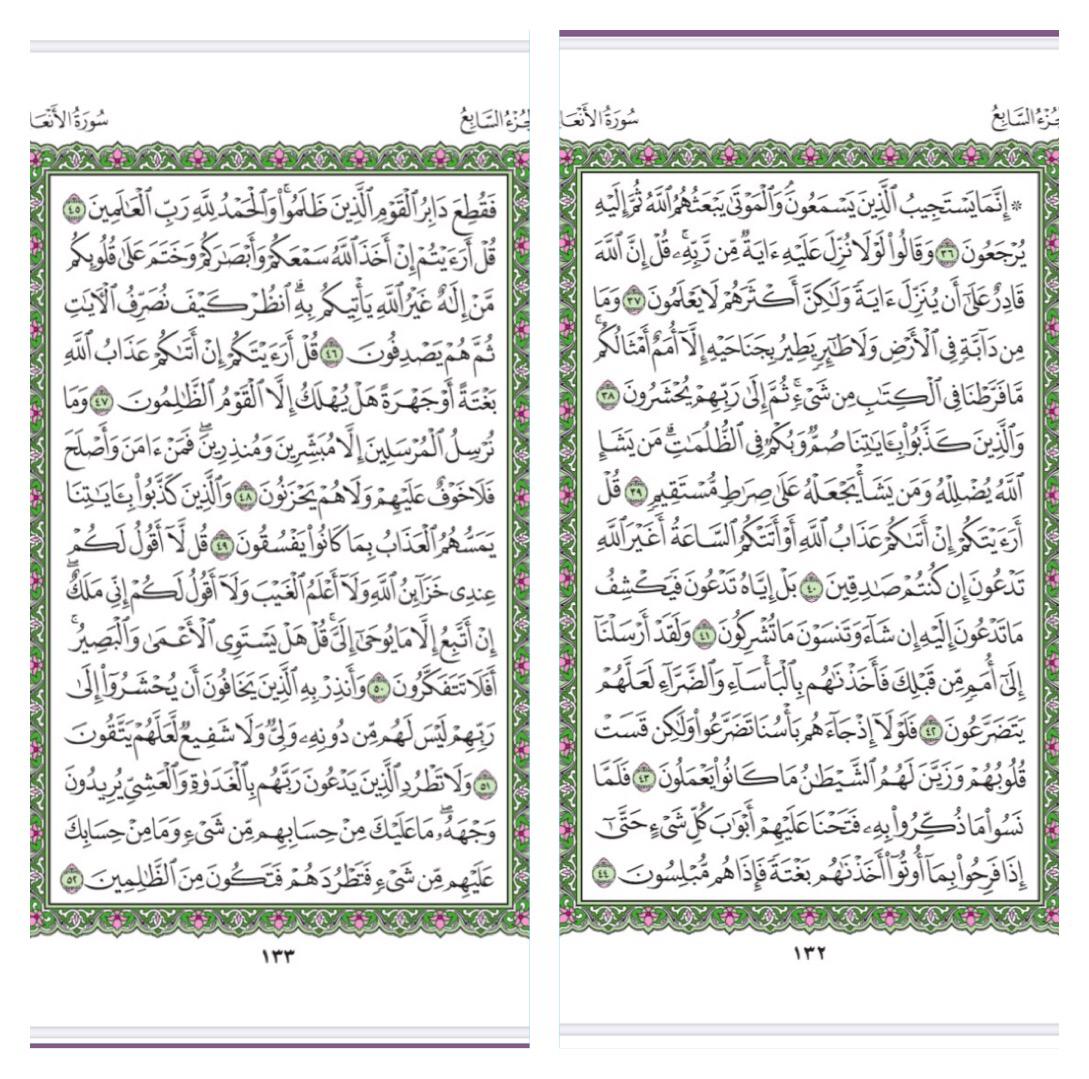 الجزء السابع سورة الأنعا
۞ إِنَّمَا يَسْتَجِيبُ ٱلَّذِينَ يَسْمَعُونَۘ وَٱلْمَوْتَىٰ يَبْعَثُهُمُ ٱللَّهُ ثُمَّ إِلَيْهِ
يُرْجَعُونَ ٣٦ وَقَالُوا۟ لَوْلَا نُزِّلَ عَلَيْهِ ءَايَةٌ مِّن رَّبِّهِۦۚ قُلْ إِنَّ ٱللَّهَ
قَادِرٌ عَلَىٰٓ أَن يُنَزِّلَ ءَايَةً وَلَٰكِنَّ أَكْثَرَهُمْ لَا يَعْلَمُونَ ٣٧ وَمَا
مِن دَآبَّةٍ فِى ٱلْأَرْضِ وَلَا طَٰٓئِرٍ يَطِيرُ بِجَنَاحَيْهِ إِلَّآ أُمَمٌ أَمْثَالُكُمۚ
مَّا فَرَّطْنَا فِى ٱلْكِتَٰبِ مِن شَىْءٍۚ ثُمَّ إِلَىٰ رَبِّهِمْ يُحْشَرُونَ ٣٨
وَٱلَّذِينَ كَذَّبُوا۟ بِـَٔايَٰتِنَا صُمٌّ وَبُكْمٌ فِى ٱلظُّلُمَٰتِۗ مَن يَشَإِ
ٱللَّهُ يُضْلِلْهُ وَمَن يَشَأْ يَجْعَلْهُ عَلَىٰ صِرَٰطٍ مُّسْتَقِيمٍ ٣٩ قُلْ
أَرَءَيْتَكُمْ إِنْ أَتَىٰكُمْ عَذَابُ ٱللَّهِ أَوْ أَتَتْكُمُ ٱلسَّاعَةُ أَغَيْرَ ٱللَّهِ
تَدْعُونَ إِن كُنتُمْ صَٰدِقِينَ ٤٠ بَلْ إِيَّاهُ تَدْعُونَ فَيَكْشِفُ
مَا تَدْعُونَ إِلَيْهِ إِن شَآءَ وَتَنسَوْنَ مَا تُشْرِكُونَ ٤١ وَلَقَدْ أَرْسَلْنَآ
إِلَىٰٓ أُمَمٍ مِّن قَبْلِكَ فَأَخَذْنَٰهُم بِٱلْبَأْسَآءِ وَٱلضَّرَّآءِ لَعَلَّهُمْ
يَتَضَرَّعُونَ ٤٢ فَلَوْلَآ إِذْ جَآءَهُم بَأْسُنَا تَضَرَّعُوا۟ وَلَٰكِن قَسَتْ
قُلُوبُهُمْ وَزَيَّنَ لَهُمُ ٱلشَّيْطَٰنُ مَا كَانُوا۟ يَعْمَلُونَ ٤٣ فَلَمَّا
نَسُوا۟ مَا ذُكِّرُوا۟ بِهِۦ فَتَحْنَا عَلَيْهِمْ أَبْوَٰبَ كُلِّ شَىْءٍ حَتَّىٰٓ
إِذَا فَرِحُوا۟ بِمَآ أُوتُوٓا۟ أَخَذْنَٰهُم بَغْتَةً فَإِذَا هُم مُّبْلِسُونَ ٤٤
١٣٢
الجزء السابع سورة الأنعا
فَقُطِعَ دَابِرُ ٱلْقَوْمِ ٱلَّذِينَ ظَلَمُوا۟ۚ وَٱلْحَمْدُ لِلَّهِ رَبِّ ٱلْعَٰلَمِينَ ٤٥
قُلْ أَرَءَيْتُمْ إِنْ أَخَذَ ٱللَّهُ سَمْعَكُمْ وَأَبْصَٰرَكُمْ وَخَتَمَ عَلَىٰ قُلُوبِكُم
مَّنْ إِلَٰهٌ غَيْرُ ٱللَّهِ يَأْتِيكُم بِهِۗ ٱنظُرْ كَيْفَ نُصَرِّفُ ٱلْءَايَٰتِ
ثُمَّ هُمْ يَصْدِفُونَ ٤٦ قُلْ أَرَءَيْتَكُمْ إِنْ أَتَىٰكُمْ عَذَابُ ٱللَّهِ
بَغْتَةً أَوْ جَهْرَةً هَلْ يُهْلَكُ إِلَّا ٱلْقَوْمُ ٱلظَّٰلِمُونَ ٤٧ وَمَا
نُرْسِلُ ٱلْمُرْسَلِينَ إِلَّا مُبَشِّرِينَ وَمُنذِرِينَۖ فَمَنْ ءَامَنَ وَأَصْلَحَ
فَلَا خَوْفٌ عَلَيْهِمْ وَلَا هُمْ يَحْزَنُونَ ٤٨ وَٱلَّذِينَ كَذَّبُوا۟ بِـَٔايَٰتِنَا
يَمَسُّهُمُ ٱلْعَذَابُ بِمَا كَانُوا۟ يَفْسُقُونَ ٤٩ قُل لَّآ أَقُولُ لَكُمْ
عِندِى خَزَآئِنُ ٱللَّهِ وَلَآ أَعْلَمُ ٱلْغَيْبَ وَلَآ أَقُولُ لَكُمْ إِنِّى مَلَكٌۖ
إِنْ أَتَّبِعُ إِلَّا مَا يُوحَىٰٓ إِلَىَّۚ قُلْ هَلْ يَسْتَوِى ٱلْأَعْمَىٰ وَٱلْبَصِيرُۚ
أَفَلَا تَتَفَكَّرُونَ ٥٠ وَأَنذِرْ بِهِ ٱلَّذِينَ يَخَافُونَ أَن يُحْشَرُوٓا۟ إِلَىٰ
رَبِّهِمْ لَيْسَ لَهُم مِّن دُونِهِۦ وَلِىٌّ وَلَا شَفِيعٌ لَّعَلَّهُمْ يَتَّقُونَ
٥١ وَلَا تَطْرُدِ ٱلَّذِينَ يَدْعُونَ رَبَّهُم بِٱلْغَدَوٰةِ وَٱلْعَشِىِّ يُرِيدُونَ
وَجْهَهُۥۖ مَا عَلَيْكَ مِنْ حِسَابِهِم مِّن شَىْءٍ وَمَا مِنْ حِسَابِكَ
عَلَيْهِم مِّن شَىْءٍ فَتَطْرُدَهُمْ فَتَكُونَ مِنَ ٱلظَّٰلِمِينَ ٥٢
١٣٣